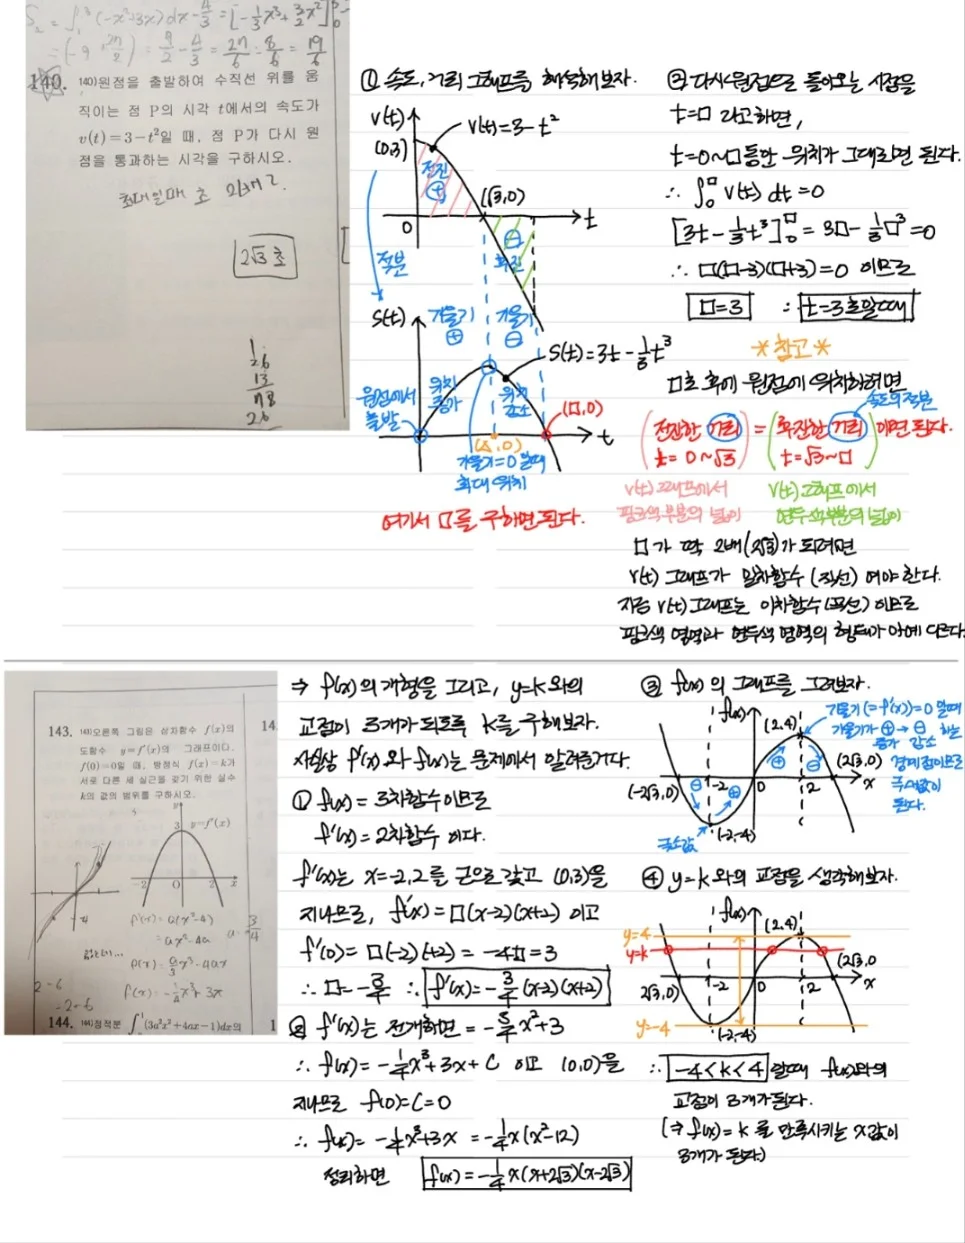 S₂ = ∫₁³(-x²+3x)dx - 4/3 = [-1/3x³+3/2x²]
= (-9+27/2) = 9/2 - 4/3 = 27/6 - 8/6 = 19/6
140. 140)원점을 출발하여 수직선 위를 움
직이는 점 P의 시각 t에서의 속도가
v(t)=3-t²일 때, 점 P가 다시 원
점을 통과하는 시각을 구하시오.
2√3 초
① 속도, 거리 그래프를 해석해보자.
v(t)
v(t)=3-t²
(0,3)
전진
⊕
(√3,0)
0
t
⊖
후진
적분
S(t)
기울기
⊕
기울기
⊖
S(t)=3t-1/3t³
원점에서
출발
위치
증가
위치
감소
(□,0)
(△,0)
t
기울기=0 일때
최대 위치
여기서 □를 구하면 된다.
② 다시 원점으로 돌아오는 시점을
t=□ 라고하면,
t=0~□동안 위치가 그대로면 된다.
∴ ∫₀^□ v(t) dt =0
[3t-1/3t³]₀^□ = 3□-1/3□³=0
∴ □(□-3)(□+3)=0 이므로
□=3 ∴ t=3초일때
*참고*
□초 후에 원점에 위치하려면
속도의 적분
(전진한 거리 t=0~√3) = (후진한 거리 t=√3~□) 이면 된다.
v(t) 그래프에서
핑크색 부분의 넓이
v(t) 그래프에서
연두색 부분의 넓이
□가 딱 2배(2√3)가 되려면
v(t) 그래프가 일차함수 (직선) 여야 한다.
지금 v(t)그래프는 이차함수(곡선) 이므로
핑크색 영역과 연두색 영역의 형태가 아예 다르다
143. 143)오른쪽 그림은 삼차함수 f(x)의
도함수 y=f'(x)의 그래프이다.
f(0)=0일 때, 방정식 f(x)=k가
서로 다른 세 실근을 갖기 위한 실수
k의 값의 범위를 구하시오.
14
y
3
y=f'(x)
-2
0
2
x
f'(x)=a(x²-4)
=ax²-4a
a=-3/4
f(x)=a/3x³-4ax
f(x)=-1/4x³+3x
144. 144)정적분 ∫₀¹(3a²x²+4ax-1)dx의
1
⇒ f(x)의 개형을 그리고, y=k와의
교점이 3개가 되도록 k를 구해보자.
사실상 f'(x)와 f(x)는 문제에서 알려준거다.
① f(x)=3차함수이므로
f'(x)=2차함수 이다.
f'(x)는 x=-2,2를 근으로 갖고 (0,3)을
지나므로, f'(x)=□(x-2)(x+2) 이고
f'(0)=□(-2)(+2)=-4□=3
∴ □=-3/4 ∴ f'(x)=-3/4(x-2)(x+2)
② f'(x)는 전개하면 =-3/4x²+3
∴ f(x)=-1/4x³+3x+C 이고 (0,0)을
지나므로 f(0)=C=0
∴ f(x)=-1/4x³+3x=-1/4x(x²-12)
정리하면 f(x)=-1/4x(x+2√3)(x-2√3)
③ f(x)의 그래프를 그려보자.
f(x)
(2,4)
기울기(=f'(x))=0 일때
기울기가 ⊕→⊖ 하는
증가 감소
경계점이므로
극대값이
된다.
(-2√3,0)
-2
0
2
(2√3,0)
x
극소값
(-2,-4)
④ y=k와의 교점을 생각해보자.
f(x)
(2,4)
y=4
y=k
(2√3,0
2√3,0)
-2
0
2
x
y=-4
(-2,-4)
∴ -4<k<4 일때 f(x)와의
교점이 3개가 된다.
(⇒ f(x)=k를 만족시키는 x값이
3개가 된다.)